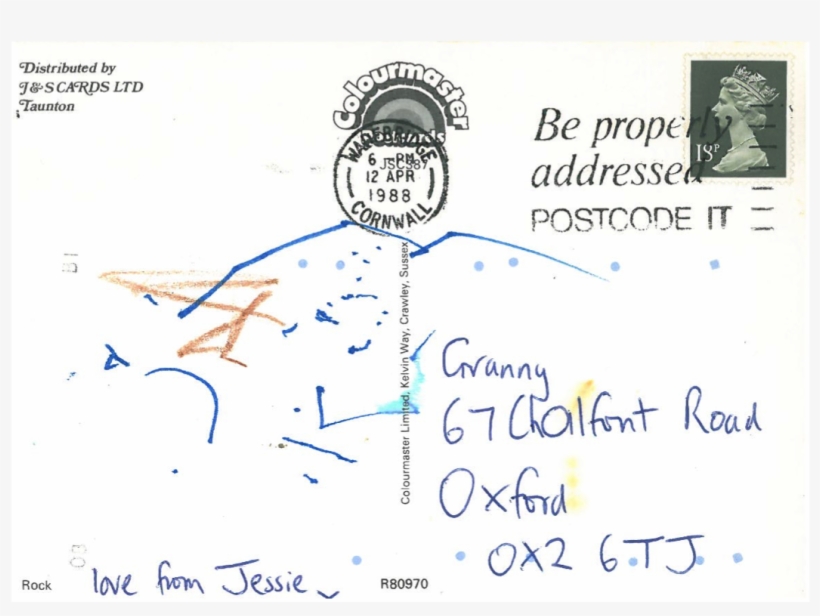 Distributed by
J&S CARDS LTD
Taunton
Colourmaster
WADEBRIDGE
6 - PM
JSC387
12 APR
1988
CORNWALL
Be properly
addressed
POSTCODE IT
18P
Colourmaster Limited, Kelvin Way, Crawley, Sussex
Granny
67 Chalfont Road
Oxford
OX2 6TJ
love from Jessie
Rock
R80970